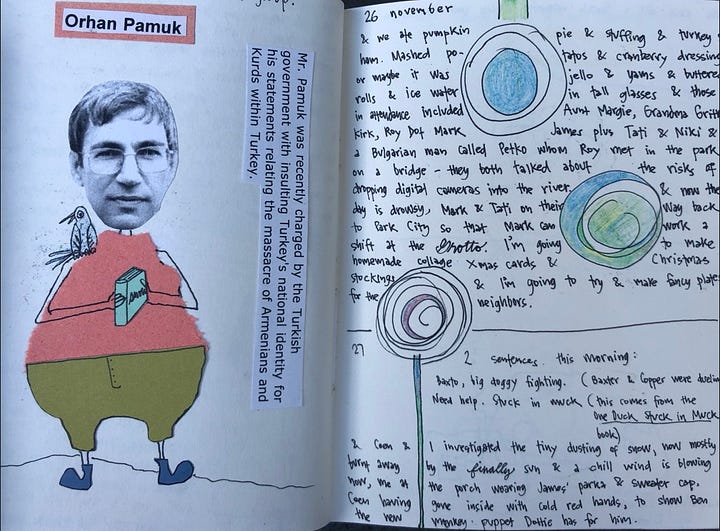 Orhan Pamuk
Mr. Pamuk was recently charged by the Turkish
government with insulting Turkey's national identity for
his statements relating the massacre of Armenians and
Kurds within Turkey.
26 november
& we ate pumpkin pie & stuffing & turkey &
ham. Mashed po- tatos & cranberry dressing
or maybe it was jello & yams & buttered
rolls & ice water in tall glasses & those
in attendance included Aunt Margie, Grandma
Kirk, Roy Dot Mark James plus Tati & Niki &
a Bulgarian man called Petko whom Roy met in the park
on a bridge - they both talked about the risks of
dropping digital cameras into the river & now the
day is drowsy, Mark & Tati on their way back
to Park City so that Mark can work a
shift at the Ghotto. I'm going to make
homemade collage Xmas cards & Christmas
stockings & I'm going to try & make fancy plate
for the neighbors.
27
2 sentences this morning:
Baxto, big doggy fighting. (Baxter & Copper were
Need help. Stuck in muck (this comes from the
One Duck Stuck in Muck
book)
& Coen & I investigated the tiny dusting of snow, now mostly
burnt away by the finally sun & a chill wind is blowing
now, me at the porch wearing James' parka & sweater cap.
Coen having gone inside with cold red hands, to show Ben
the new monkey puppet Dottie has for him